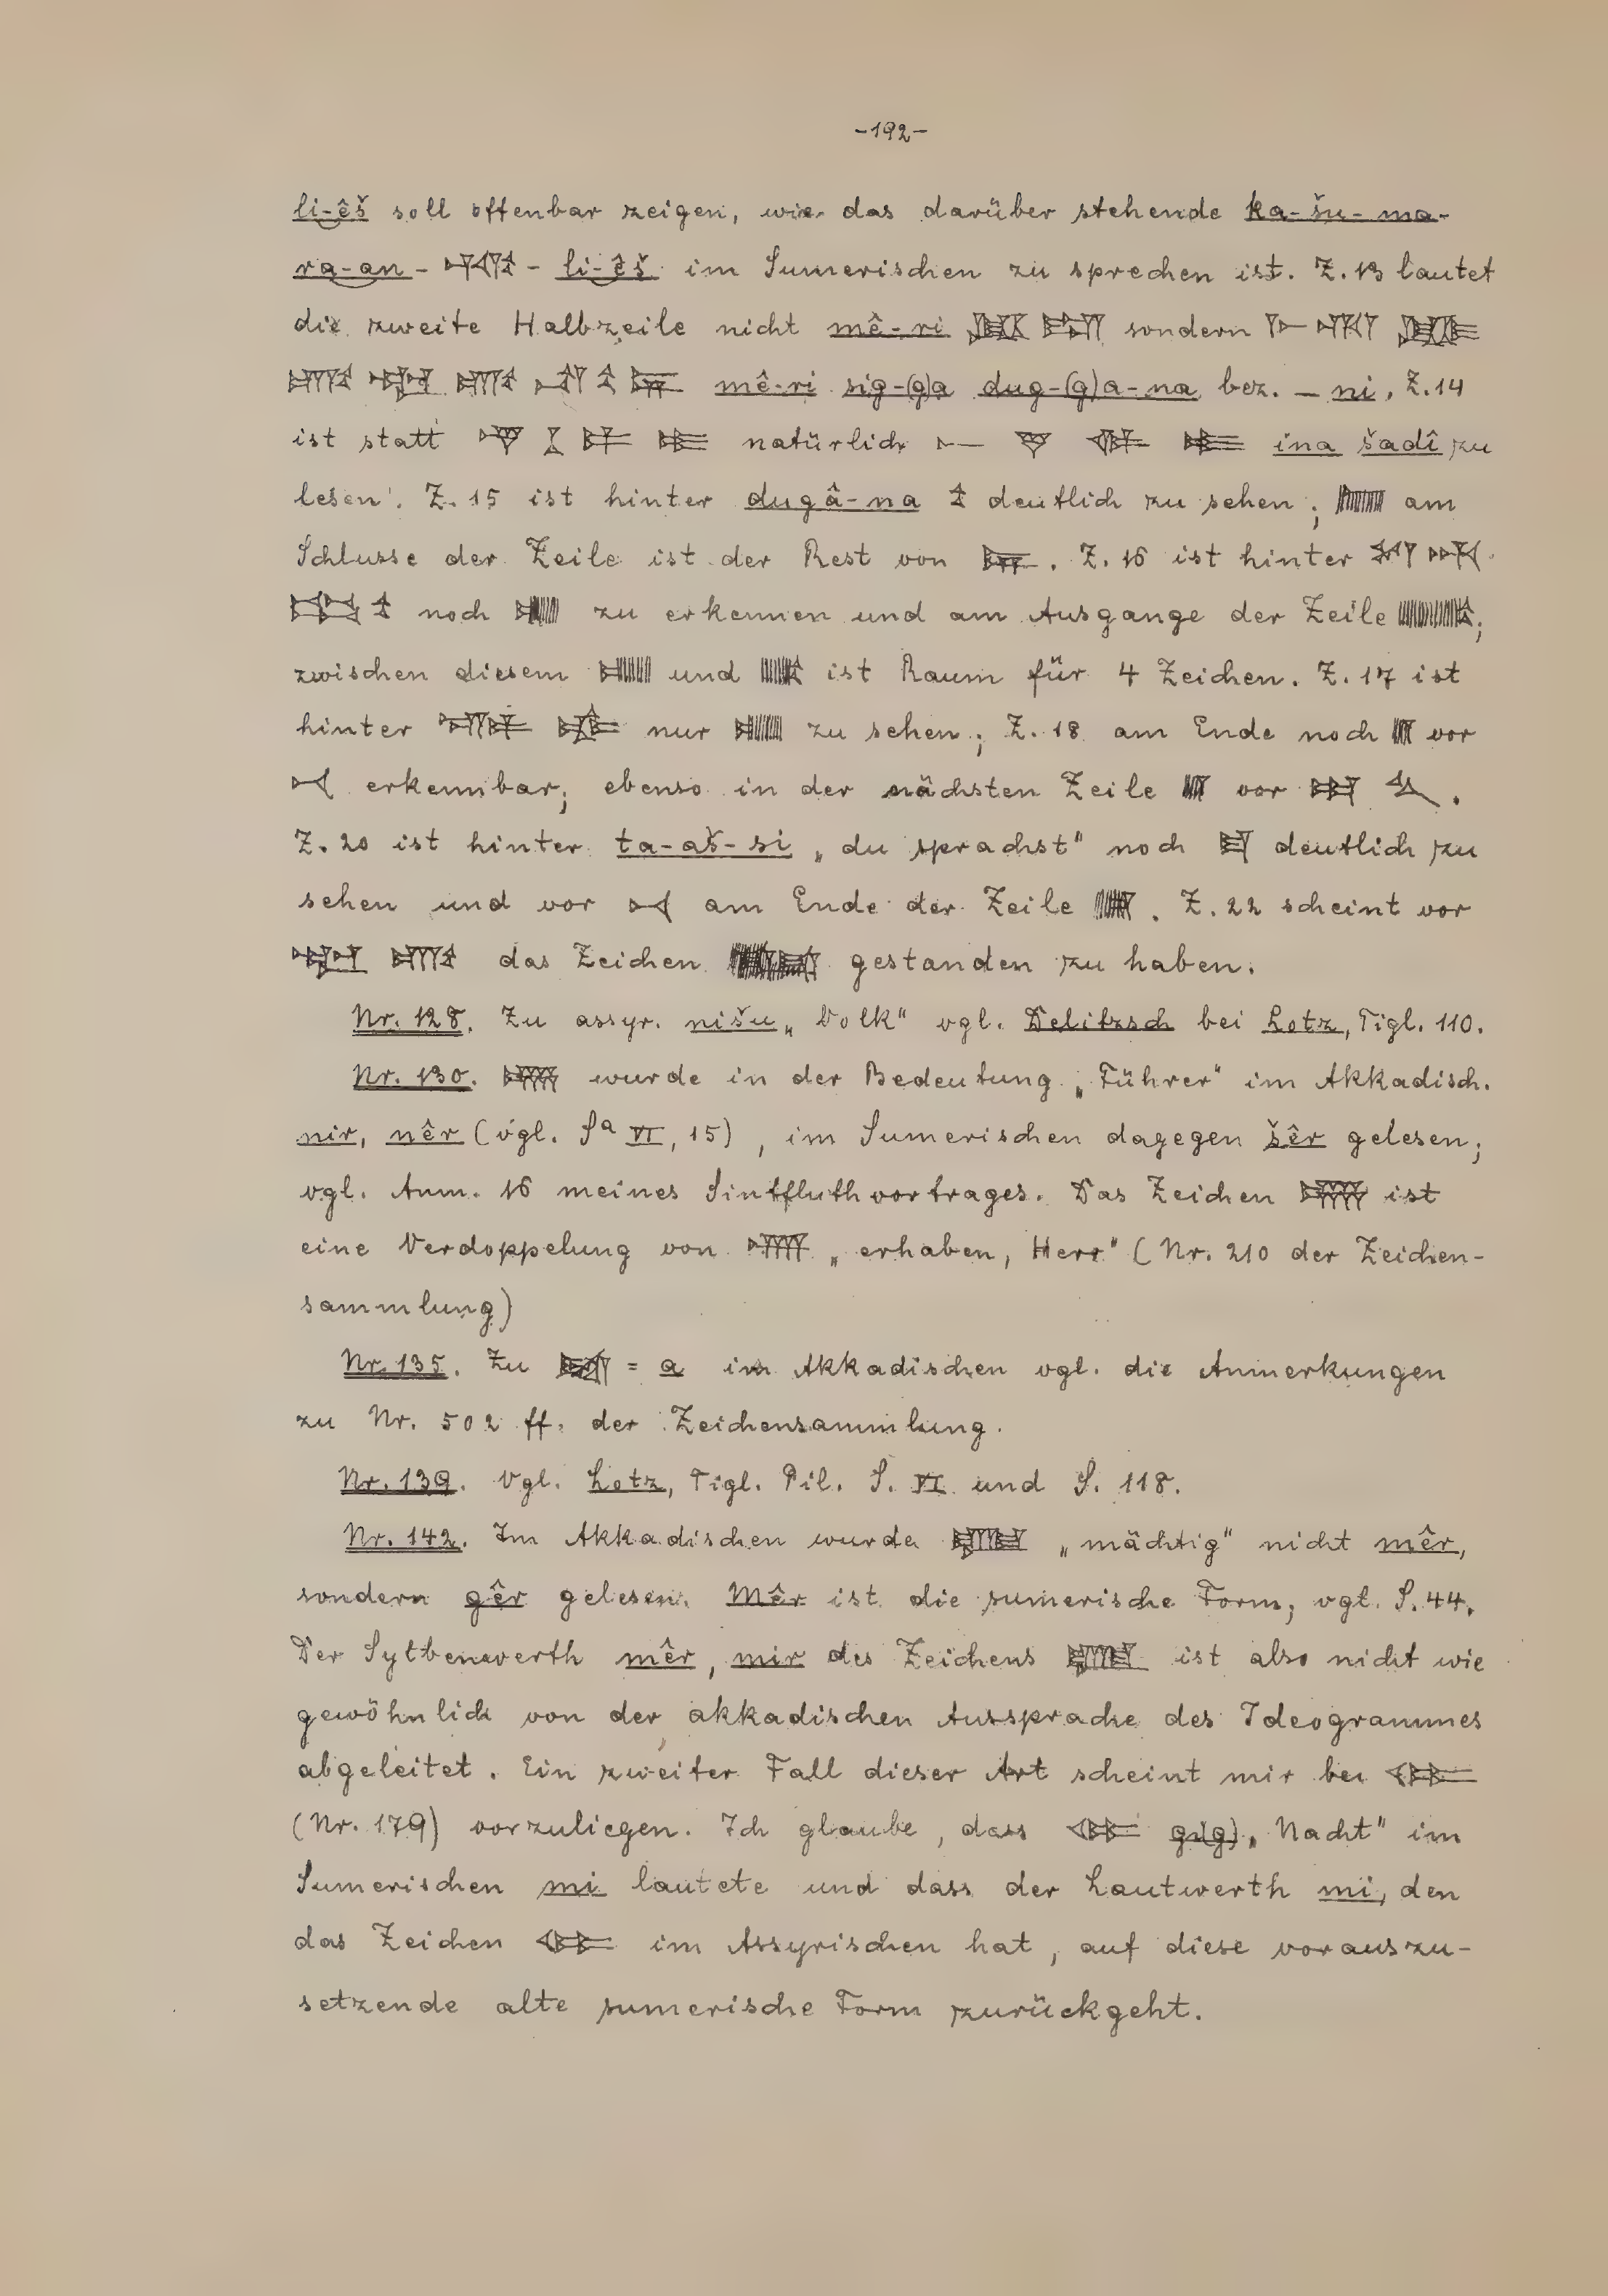 -192-
li-êš soll offenbar zeigen, wie das darüber stehende ka-šu-ma-
ra-an- - li-êš im Sumerischen zu sprechen ist. Z. 13 lautet
die zweite Halbzeile nicht mê-ri sondern
mê-ri sig-(g)a dug-(g)a-na bez. — ni, Z. 14
ist statt natürlich ina šadî zu
lesen. Z. 15 ist hinter dugâ-na deutlich zu sehen; am
Schlusse der Zeile ist der Rest von . Z. 16 ist hinter
noch zu erkennen und am Ausgange der Zeile ;
zwischen diesem und ist Raum für 4 Zeichen. Z. 17 ist
hinter nur zu sehen; Z. 18 am Ende noch vor
erkennbar; ebenso in der nächsten Zeile vor .
Z. 20 ist hinter ta-aš-si „du sprachst“ noch deutlich zu
sehen und vor am Ende der Zeile . Z. 22 scheint vor
das Zeichen gestanden zu haben.
Nr. 128. Zu assyr. nišu „Volk“ vgl. Delitzsch bei Lotz, Tigl. 110.
Nr. 130. wurde in der Bedeutung „Führer“ im Akkadisch.
nir, nêr (vgl. Sᵃ VI, 15), im Sumerischen dagegen šêr gelesen;
vgl. Anm. 16 meines Sintfluthvortrages. Das Zeichen ist
eine Verdoppelung von „erhaben, Herr“ (Nr. 210 der Zeichen-
sammlung)
Nr. 135. Zu = a im Akkadischen vgl. die Anmerkungen
zu Nr. 502 ff. der Zeichensammlung.
Nr. 139. Vgl. Lotz, Tigl. Pil. S. VI und S. 118.
Nr. 142. Im Akkadischen wurde „mächtig“ nicht mêr,
sondern gêr gelesen. Mêr ist die sumerische Form, vgl. S. 44.
Der Sylbenwerth mêr, mir des Zeichens ist also nicht wie
gewöhnlich von der akkadischen Aussprache des Ideogrammes
abgeleitet. Ein zweiter Fall dieser Art scheint mir bei
(Nr. 179) vorzuliegen. Ich glaube, dass „Nacht“ im
Sumerischen mi lautete und dass der Lautwerth mi, den
das Zeichen im Assyrischen hat, auf diese vorauszu-
setzende alte sumerische Form zurückgeht.